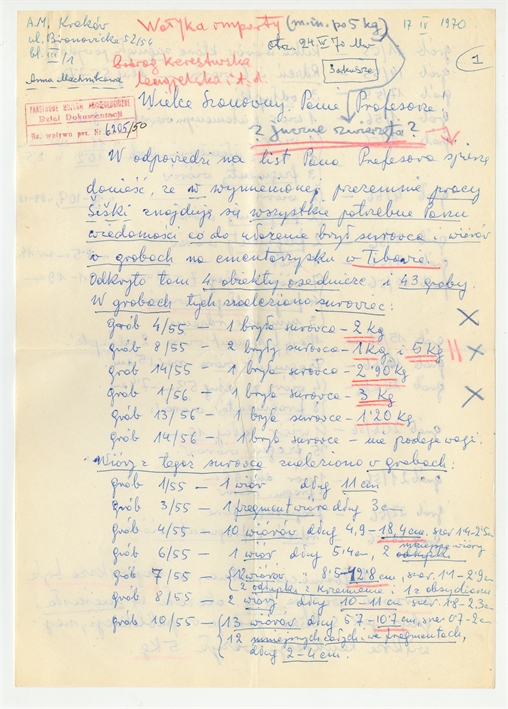 A.M. Kraków
ul. Bronowicka 52/56
bl. III/1
Anna Machnikowa
Wołyka importy (m.in. po 5 kg)
17 IV 1970
otrz. 24 IV 70
1
PAŃSTWOWE MUZEUM ARCHEOLOGICZNE
Dział Dokumentacji
Nr. wpływu por. Nr 6205/50
Wielce Szanowny Panie Profesorze!
W odpowiedzi na list Pana Profesora spieszę
donieść, że w wymienionej przezemnie pracy
Šiški znajdują się wszystkie potrzebne Panu
wiadomości co do złożenia brył surowca i wiórów
w grobach na cmentarzysku w Tibava.
Odkryto tam 4 obiekty osadnicze i 43 groby.
W grobach tych znaleziono surowiec:
grób 4/55 – 1 bryła surowca – 2 kg
grób 8/55 – 2 bryły surowca – 1 Kg i 5 Kg
grób 14/55 – 1 bryła surowca – 2'90 Kg
grób 1/56 – 1 bryła surowca – 3 Kg
grób 13/56 – 1 bryła surowca – 1'20 Kg
grób 14/56 – 1 bryła surowca – nie podaje wagi.
Wióry z tegoż surowca znaleziono w grobach:
grób 1/55 – 1 wiór dług 11 cm
grób 3/55 – 1 fragment wióra dług 3 cm
grób 4/55 – 10 wiórów dług 4,9 – 18,4 cm, szer 1'4 – 2'5 cm
grób 6/55 – 1 wiór dług 5'4 cm, 2 mniejsze wióry
grób 7/55 – 12 wiórów " 8'5 – 12'8 cm, szer 1'1 – 2'9 cm
2 odłupki z krzemienia i 1 z obsydianu
grób 8/55 – 2 wióry dług 10 – 11 cm szer 1'8 – 2'3 cm
grób 10/55 – 13 wiórów dług 5'7 – 10'7 cm, szer 0'7 – 2 cm
12 mniejszych całych i we fragmentach,
dług 2 – 4 cm.